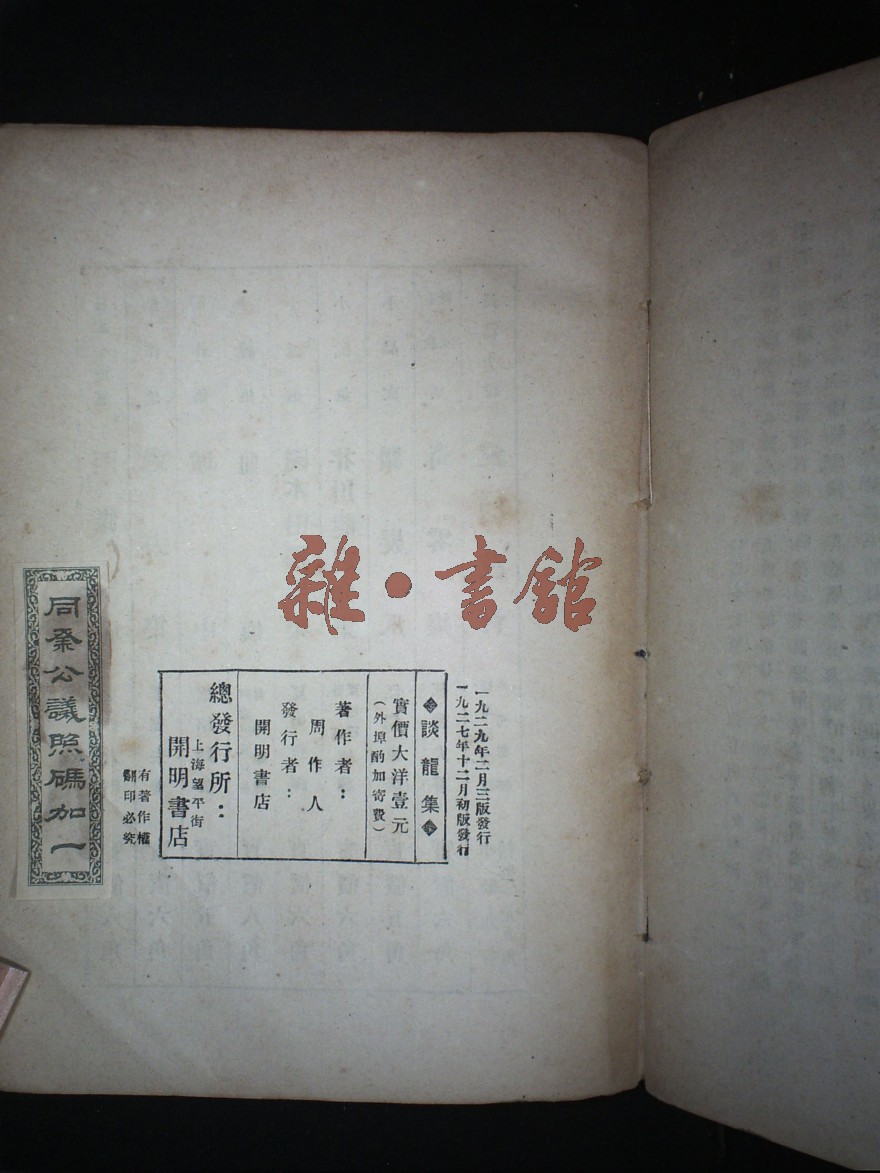 一九二九年二月三版發行
一九二七年十二月初版發行
談龍集
實價大洋壹元
(外埠酌加寄費)
著作者:
周作人
發行者:
開明書店
總發行所:
上海望平街
開明書店
有著作權
翻印必究
同業公議照碼加一
雜•書館